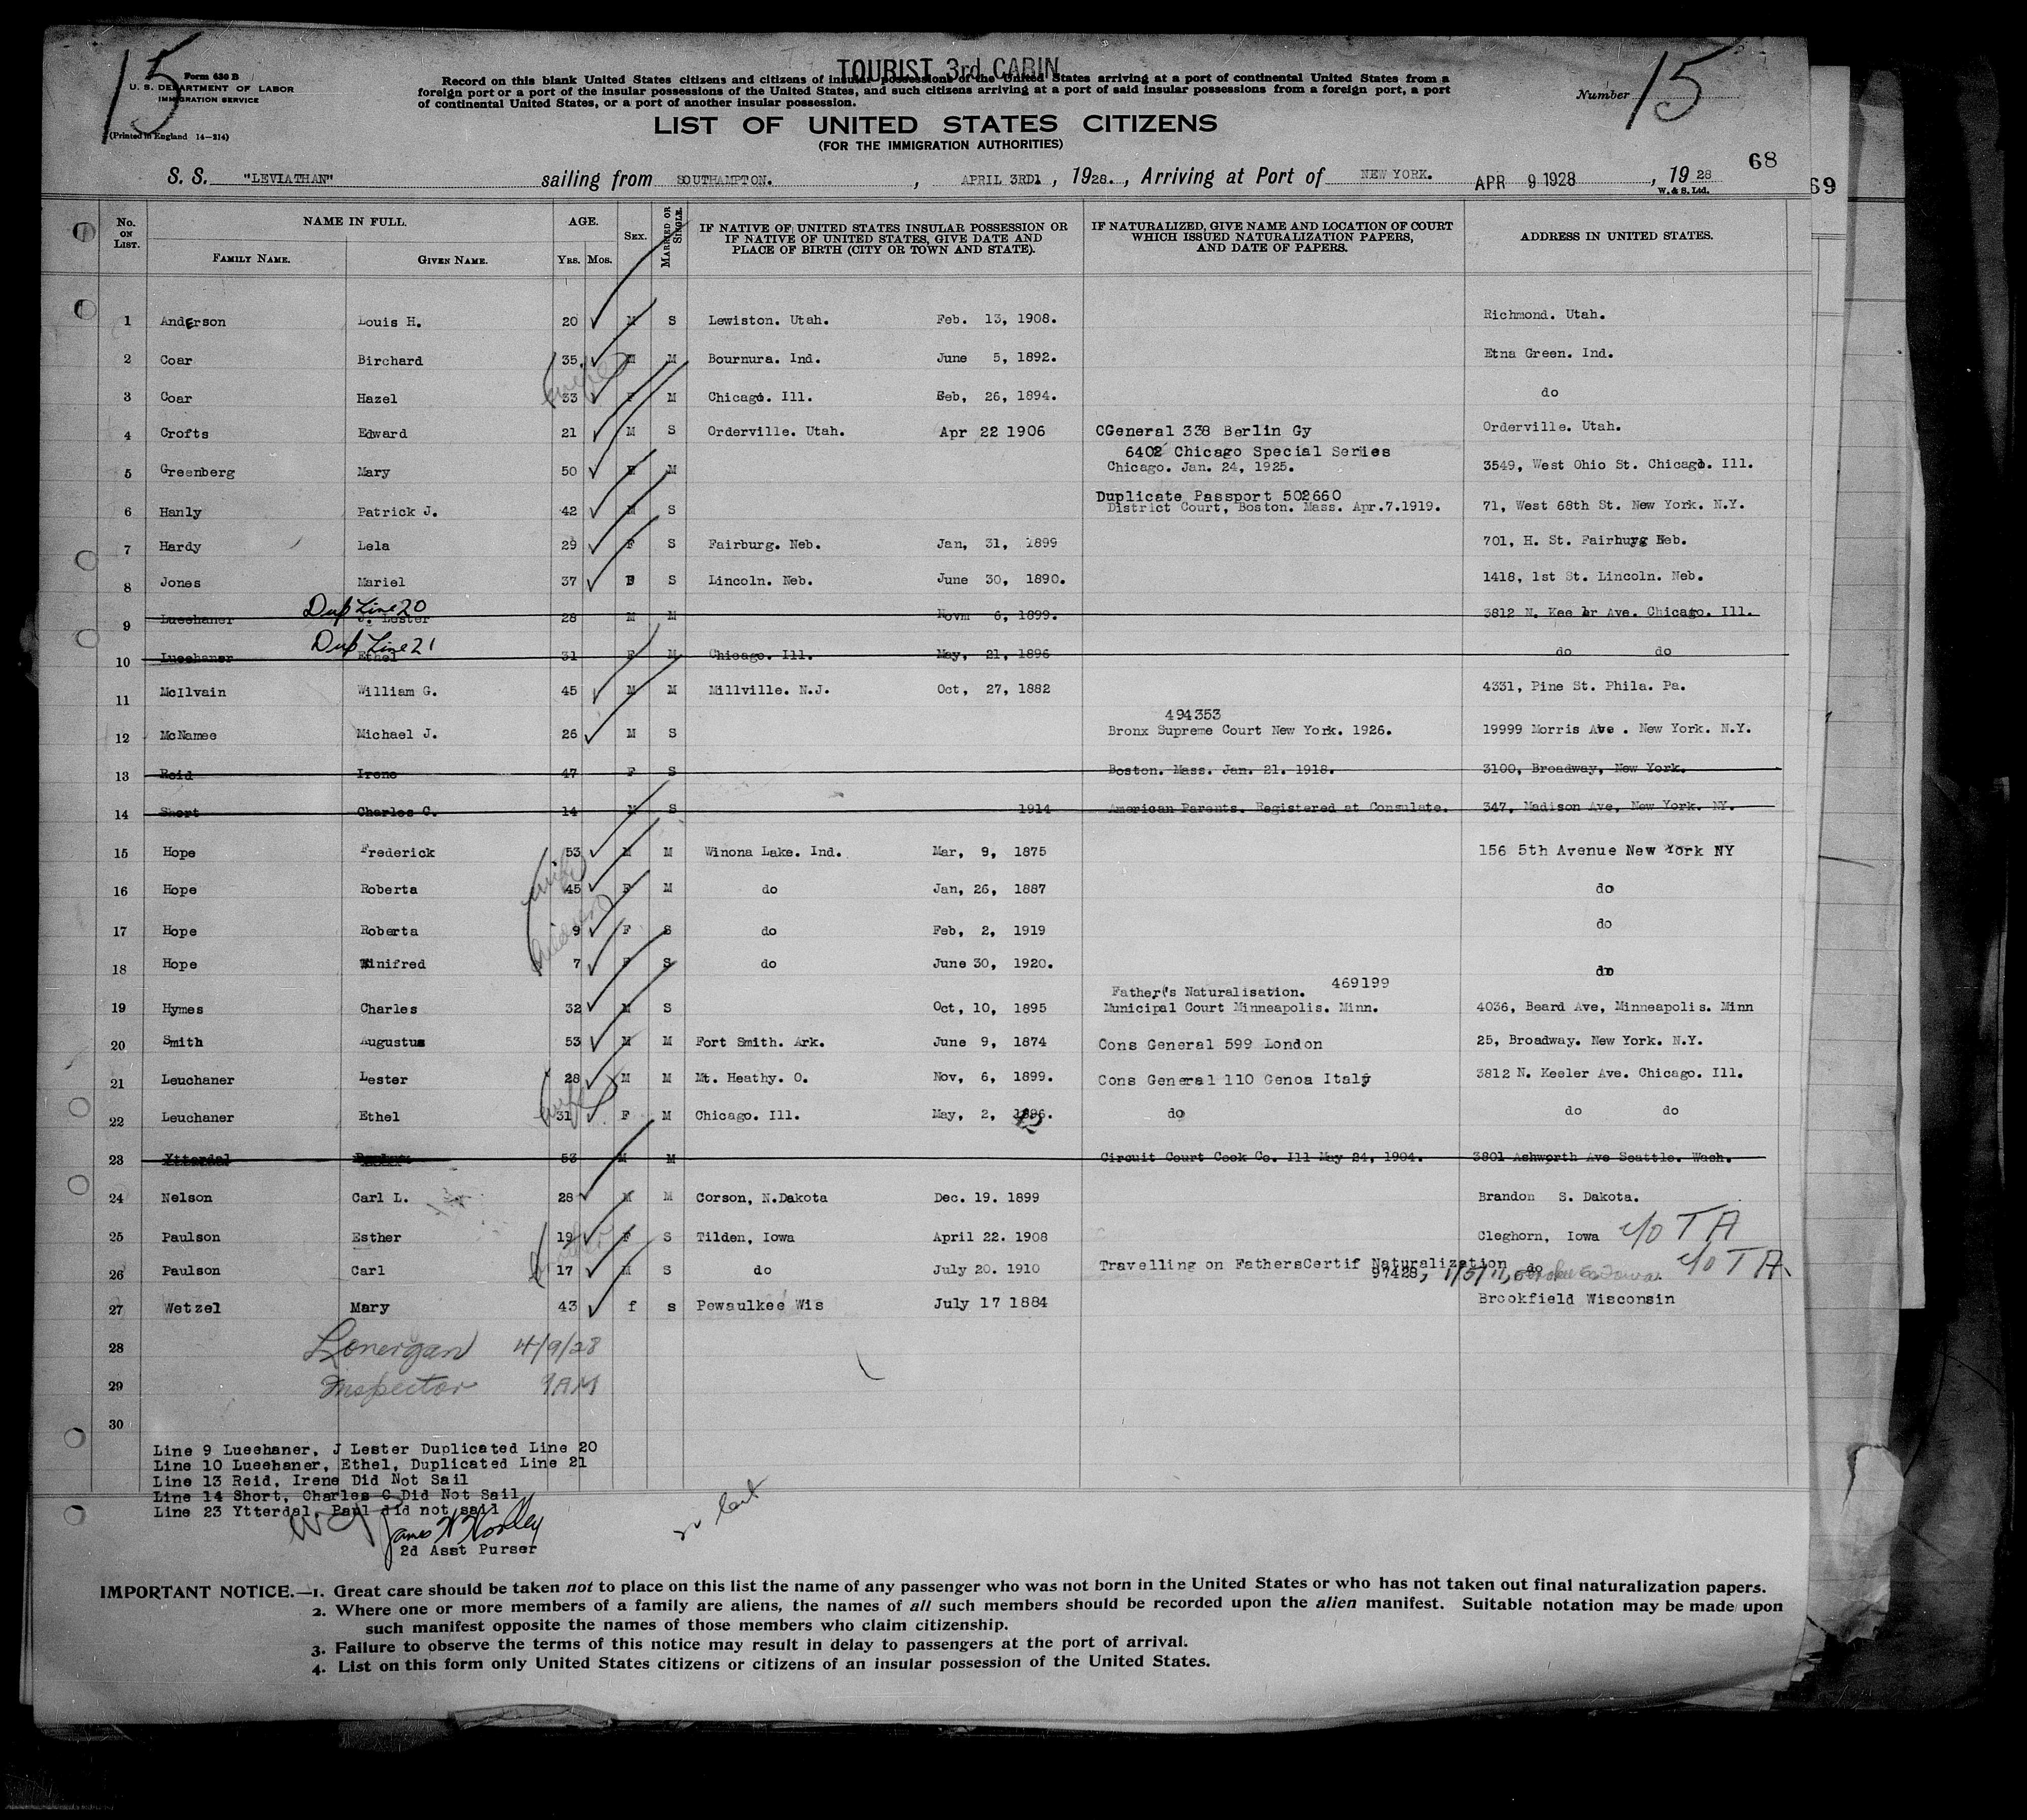 15
Form 630 B
U. S. DEPARTMENT OF LABOR
IMMIGRATION SERVICE
(Printed in England 14-214)
TOURIST 3rd CABIN
Record on this blank United States citizens and citizens of insular possessions of the United States arriving at a port of continental United States from a
foreign port or a port of the insular possessions of the United States, and such citizens arriving at a port of said insular possessions from a foreign port, a port
of continental United States, or a port of another insular possession.
Number 15
LIST OF UNITED STATES CITIZENS
(FOR THE IMMIGRATION AUTHORITIES)
68
69
S. S. "LEVIATHAN" sailing from SOUTHAMPTON. , APRIL 3RD1 , 1928. , Arriving at Port of NEW YORK. APR 9 1928 , 1928
W. & S. Ltd.
No. ON LIST. NAME IN FULL. AGE. SEX. MARRIED OR SINGLE. IF NATIVE OF UNITED STATES INSULAR POSSESSION OR IF NATIVE OF UNITED STATES, GIVE DATE AND PLACE OF BIRTH (CITY OR TOWN AND STATE). IF NATURALIZED, GIVE NAME AND LOCATION OF COURT WHICH ISSUED NATURALIZATION PAPERS, AND DATE OF PAPERS. ADDRESS IN UNITED STATES.
FAMILY NAME. GIVEN NAME. YRS. MOS.
1 Anderson Louis H. 20 M S Lewiston. Utah. Feb. 13, 1908. Richmond. Utah.
2 Coar Birchard 35 M M Bournura. Ind. June 5, 1892. Etna Green. Ind.
wife
3 Coar Hazel 33 F M Chicago. Ill. Feb, 26, 1894. do
4 Crofts Edward 21 M S Orderville. Utah. Apr 22 1906 CGeneral 338 Berlin Gy Orderville. Utah.
6402 Chicago Special Series
5 Greenberg Mary 50 F M Chicago. Jan. 24, 1925. 3549, West Ohio St. Chicago. Ill.
Duplicate Passport 502660
6 Hanly Patrick J. 42 M S District Court, Boston. Mass. Apr.7.1919. 71, West 68th St. New York. N.Y.
7 Hardy Lela 29 F S Fairburg. Neb. Jan, 31, 1899 701, H. St. Fairburg Neb.
8 Jones Mariel 37 F S Lincoln. Neb. June 30, 1890. 1418, 1st St. Lincoln. Neb.
Dup Line 20
9 Lueehaner J. Lester 28 M M Novm 6, 1899. 3812 N. Keeler Ave. Chicago. Ill.
Dup Line 21
10 Lueehaner Ethel 31 F M Chicago. Ill. May, 21, 1896 do do
11 McIlvain William G. 45 M M Millville. N.J. Oct, 27, 1882 4331, Pine St. Phila. Pa.
494353
12 McNamee Michael J. 26 M S Bronx Supreme Court New York. 1926. 19999 Morris Ave . New York. N.Y.
13 Reid Irene 47 F S Boston. Mass. Jan. 21. 1918. 3100, Broadway, New York.
14 Short Charles C. 14 M S 1914 American Parents. Registered at Consulate. 347, Madison Ave, New York. NY.
15 Hope Frederick 53 M M Winona Lake. Ind. Mar, 9, 1875 156 5th Avenue New York NY
wife
16 Hope Roberta 45 F M do Jan, 26, 1887 do
children
17 Hope Roberta 9 F S do Feb, 2, 1919 do
18 Hope Winifred 7 F S do June 30, 1920. do
Father's Naturalisation. 469199
19 Hymes Charles 32 M S Oct, 10, 1895 Municipal Court Minneapolis. Minn. 4036, Beard Ave, Minneapolis. Minn
20 Smith Augustus 53 M M Fort Smith. Ark. June 9, 1874 Cons General 599 London 25, Broadway. New York. N.Y.
21 Leuchaner Lester 28 M M Mt. Heathy. O. Nov, 6, 1899. Cons General 110 Genoa Italy 3812 N. Keeler Ave. Chicago. Ill.
wife
22 Leuchaner Ethel 31 F M Chicago. Ill. May, 2, 1896. do do do
23 Ytterdal 53 M M Circuit Court Cook Co. Ill May 24, 1904. 3801 Ashworth Ave Seattle. Wash.
24 Nelson Carl L. 28 M M Corson, N.Dakota Dec. 19. 1899 Brandon S. Dakota.
25 Paulson Esther 19 F S Tilden, Iowa April 22. 1908 Cleghorn, Iowa c/o T A
brother
26 Paulson Carl 17 M S do July 20. 1910 Travelling on FathersCertif Naturalization do c/o T A
97428, 1/5/11,
27 Wetzel Mary 43 f s Pewaulkee Wis July 17 1884 Brookfield Wisconsin
28 Lonergan 4/9/28
29 Inspector 9AM
30
Line 9 Lueehaner, J Lester Duplicated Line 20
Line 10 Lueehaner, Ethel, Duplicated Line 21
Line 13 Reid, Irene Did Not Sail
Line 14 Short, Charles C Did Not Sail
Line 23 Ytterdal, Paul did not sail
2d Asst Purser
IMPORTANT NOTICE.—1. Great care should be taken not to place on this list the name of any passenger who was not born in the United States or who has not taken out final naturalization papers.
2. Where one or more members of a family are aliens, the names of all such members should be recorded upon the alien manifest. Suitable notation may be made upon
such manifest opposite the names of those members who claim citizenship.
3. Failure to observe the terms of this notice may result in delay to passengers at the port of arrival.
4. List on this form only United States citizens or citizens of an insular possession of the United States.